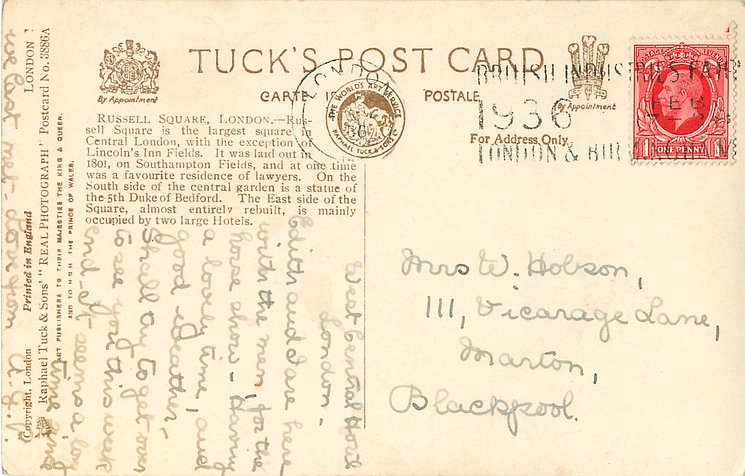 TUCK'S POST CARD
By Appointment
CARTE POSTALE
By Appointment
For Address Only.
LONDON
THE WORLD'S ART SERVICE
RAPHAEL TUCK & SONS LTD
BRITISH INDUSTRIES FAIR
1936
FEB
LONDON & BIRMINGHAM
POSTAGE REVENUE
1 ONE PENNY 1
RUSSELL SQUARE, LONDON.—Rus-
sell Square is the largest square in
Central London, with the exception of
Lincoln's Inn Fields. It was laid out in
1801, on Southampton Fields, and at one time
was a favourite residence of lawyers. On the
South side of the central garden is a statue of
the 5th Duke of Bedford. The East side of the
Square, almost entirely rebuilt, is mainly
occupied by two large Hotels.
Copyright, London Printed in England LONDON
Raphael Tuck & Sons' "REAL PHOTOGRAPH" Postcard No. 3886A
ART PUBLISHERS TO THEIR MAJESTIES THE KING & QUEEN,
AND TO H.R.H. THE PRINCE OF WALES.
West Central Hotel
London.
Edith and I are here
with the men for the
horse show - Having
a lovely time and
good weather,
Shall try to get over
to see you this week
end. It seems a long
time since
we last met - love from
Mrs W. Hobson,
111, Vicarage Lane,
Marton,
Blackpool.